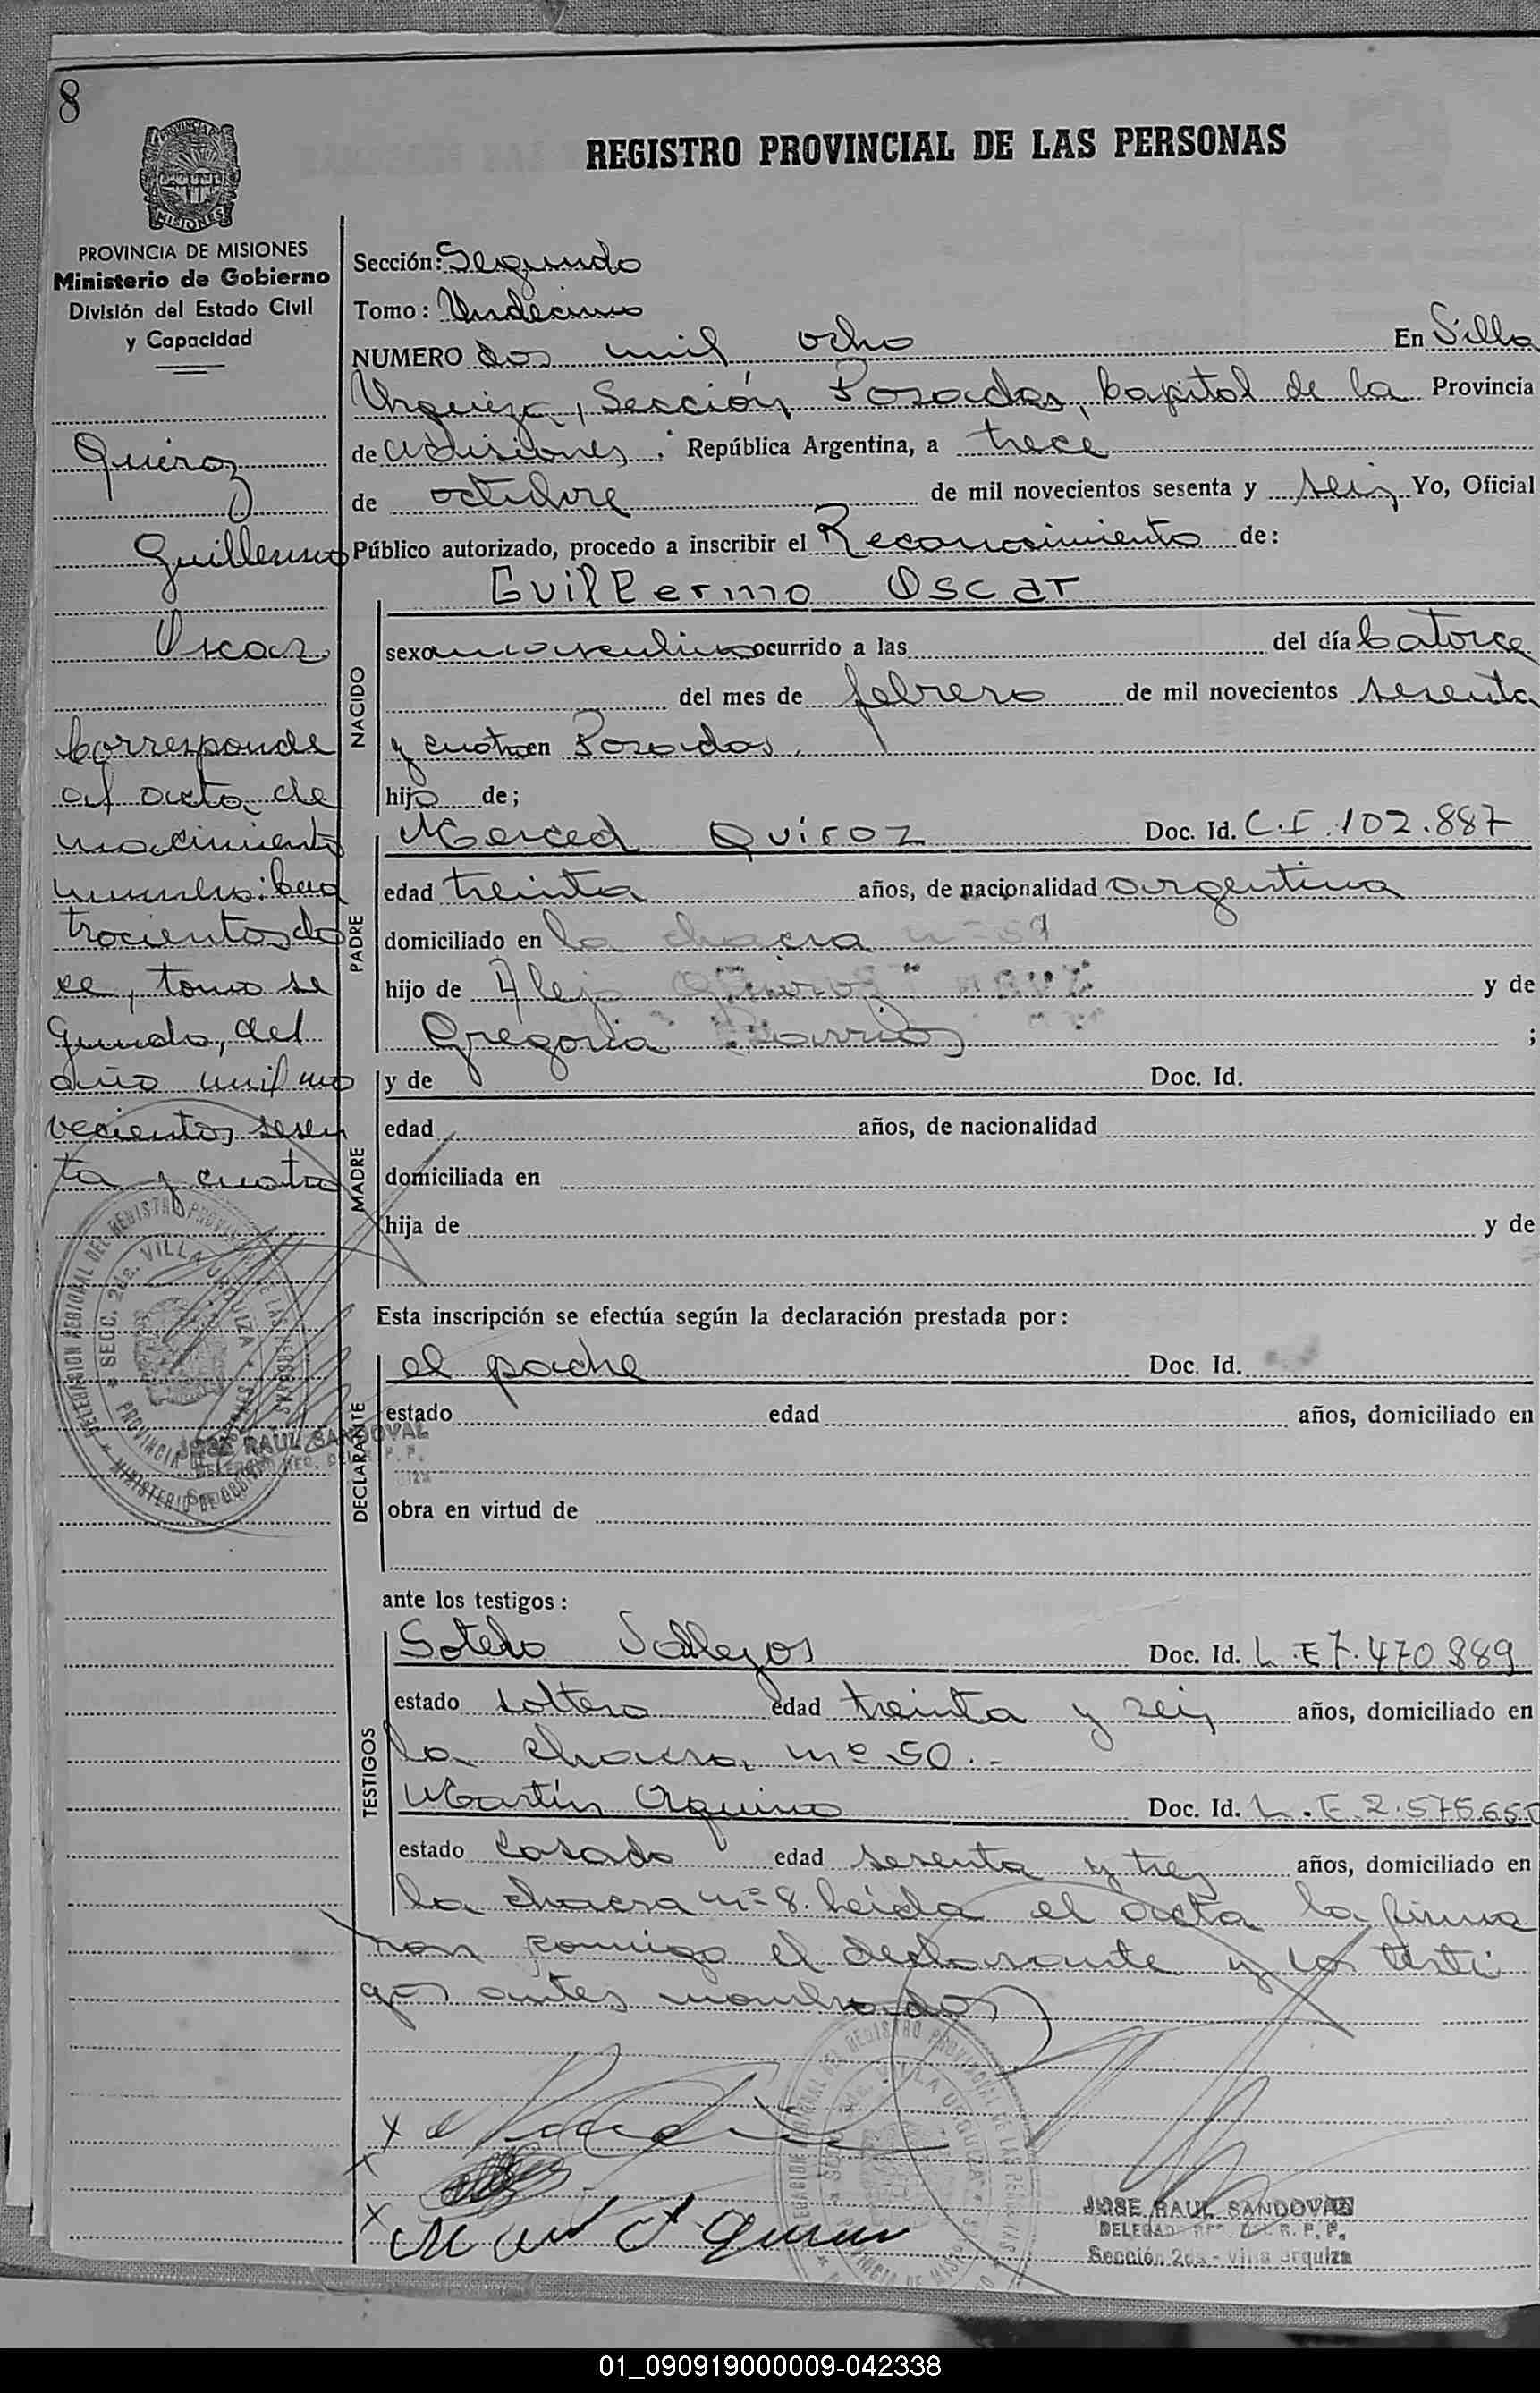 8
REGISTRO PROVINCIAL DE LAS PERSONAS
MISIONES
PROVINCIA DE MISIONES
Ministerio de Gobierno
División del Estado Civil
y Capacidad
Quiroz
Guillermo
Oscar
Corresponde
al acta de
nacimiento
numero: cua
trocientos do
ce, tomo se
gundo, del
año mil no
vecientos sesen
ta y cuatro
DELEGACION REGIONAL DEL REGISTRO PROVINCIAL DE LAS PERSONAS
SECC. 2da. VILLA URQUIZA
PROVINCIA DE MISIONES
MINISTERIO DE GOBIERNO
JOSE RAUL SANDOVAL
Sección: Segundo
Tomo: Undécimo
NUMERO dos mil ocho En Villa
Urquiza, Sección Posadas, Capital de la Provincia
de Misiones, República Argentina, a trece
de octubre de mil novecientos sesenta y seis Yo, Oficial
Público autorizado, procedo a inscribir el Reconocimiento de:
NACIDO
Guillermo Oscar
sexo masculino ocurrido a las del día Catorce
del mes de febrero de mil novecientos sesenta
y cuatro en Posadas.
hijo de;
PADRE
Merced Quiroz Doc. Id. C.I. 102.887
edad treinta años, de nacionalidad argentina
domiciliado en la chacra nº
hijo de Alejo y de
Gregoria Barrios ;
MADRE
y de Doc. Id.
edad años, de nacionalidad
domiciliada en
hija de y de
Esta inscripción se efectúa según la declaración prestada por:
DECLARANTE
el padre Doc. Id.
estado edad años, domiciliado en
obra en virtud de
ante los testigos:
TESTIGOS
Sotelo Vallejos Doc. Id. L.E 7.470.889
estado soltero edad treinta y seis años, domiciliado en
la chacra nº 50.-
Martín Aquino Doc. Id. L.E 2.575.650
estado Casado edad sesenta y tres años, domiciliado en
la chacra nº 8. Leída el acta la firma
ron conmigo el declarante y los testi
gos antes nombrados
JOSE RAUL SANDOVAL
Sección 2da - Villa Urquiza
01_090919000009-042338